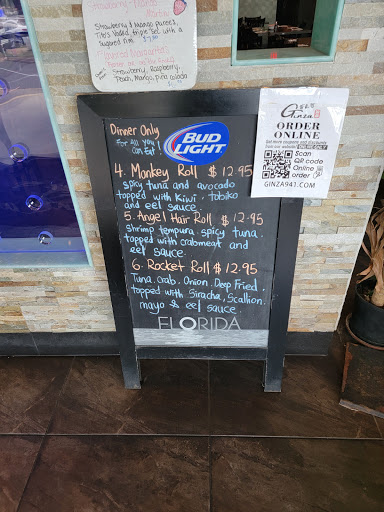 Strawberry & Mango purees,
Tito's Vodka, triple sec with a
sugared rim $7.50
Strawberry, Raspberry,
Peach, Mango, pina colada
Dinner Only
For all you
can Eat!
BUD
LIGHT
4. Monkey Roll $ 12.95
spicy tuna and avocado
topped with kiwi, tobiko
and eel sauce
5. Angel Hair Roll $ 12.95
shrimp tempura. spicy tuna.
topped with crabmeat and
eel sauce
6. Rocket Roll $ 12.95
Tuna. crab. Onion. Deep Fried.
topped with Siracha, Scallion.
mayo & eel sauce.
FLORIDA
Ginza
ORDER
ONLINE
Get more coupons and discounts
from our website
Scan
QR code
Online
order
GINZA941.COM